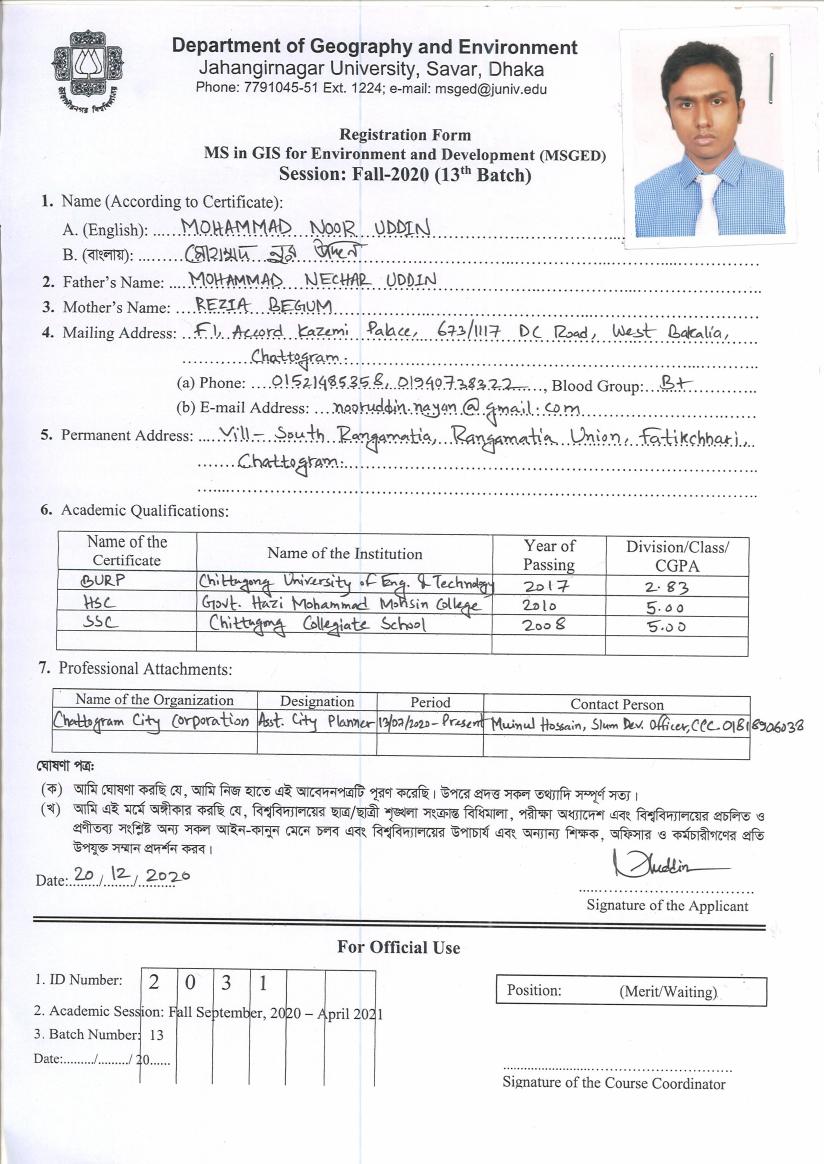 জাহাঙ্গীরনগর বিশ্ববিদ্যালয়
Department of Geography and Environment
Jahangirnagar University, Savar, Dhaka
Phone: 7791045-51 Ext. 1224; e-mail: msged@juniv.edu
Registration Form
MS in GIS for Environment and Development (MSGED)
Session: Fall-2020 (13th Batch)
1. Name (According to Certificate):
A. (English): MOHAMMAD NOOR UDDIN
B. (বাংলায়): মোহাম্মদ নুর উদ্দিন
2. Father's Name: MOHAMMAD NECHAR UDDIN
3. Mother's Name: REZIA BEGUM
4. Mailing Address: F1, Accord Kazemi Palace, 673/1117 DC Road, West Bakalia,
Chattogram.
(a) Phone: 01521485358, 01940738322, Blood Group: B+
(b) E-mail Address: nooruddin.nayan@gmail.com
5. Permanent Address: Vill- South Rangamatia, Rangamatia Union, Fatikchhari,
Chattogram.
6. Academic Qualifications:
Name of the Certificate Name of the Institution Year of Passing Division/Class/CGPA
BURP Chittagong University of Eng. & Technology 2017 2.83
HSC Govt. Hazi Mohammad Mohsin College 2010 5.00
SSC Chittagong Collegiate School 2008 5.00
7. Professional Attachments:
Name of the Organization Designation Period Contact Person
Chattogram City Corporation Asst. City Planner 13/02/2020- Present Muinul Hossain, Slum Dev. Officer, CCC. 01818906038
ঘোষণা পত্র:
(ক) আমি ঘোষণা করছি যে, আমি নিজ হাতে এই আবেদনপত্রটি পূরণ করেছি। উপরে প্রদত্ত সকল তথ্যাদি সম্পূর্ণ সত্য।
(খ) আমি এই মর্মে অঙ্গীকার করছি যে, বিশ্ববিদ্যালয়ের ছাত্র/ছাত্রী শৃঙ্খলা সংক্রান্ত বিধিমালা, পরীক্ষা অধ্যাদেশ এবং বিশ্ববিদ্যালয়ের প্রচলিত ও
প্রণীতব্য সংশ্লিষ্ট অন্য সকল আইন-কানুন মেনে চলব এবং বিশ্ববিদ্যালয়ের উপাচার্য এবং অন্যান্য শিক্ষক, অফিসার ও কর্মচারীগণের প্রতি
উপযুক্ত সম্মান প্রদর্শন করব।
Date: 20/12/2020
Signature of the Applicant
For Official Use
1. ID Number: 2 0 3 1
Position: (Merit/Waiting)
2. Academic Session: Fall September, 2020 – April 2021
3. Batch Number: 13
Date:........./........./ 20......
Signature of the Course Coordinator